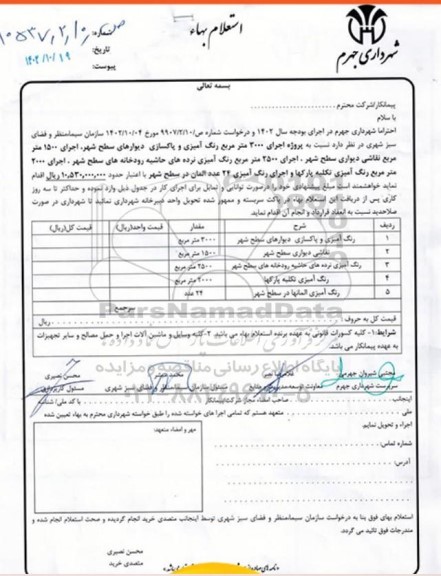 استعلام بهاء
شهرداری جهرم
تاریخ: ۱۴۰۲/۱۰/۱۹
پیوست:
بسمه تعالی
پیمانکار/شرکت محترم
با سلام
احتراما شهرداری جهرم در اجرای بودجه سال ۱۴۰۲ و درخواست شماره ص/۹۹۰۷/۲/۱۰ مورخ ۱۴۰۲/۱۰/۰۴ سازمان سیما،منظر و فضای
سبز شهری در نظر دارد نسبت به پروژه اجرای ۳۰۰۰ متر مربع رنگ آمیزی و پاکسازی دیوارهای سطح شهر، اجرای ۱۵۰۰ متر
مربع نقاشی دیواری سطح شهر ، اجرای ۲۵۰۰ متر مربع رنگ آمیزی نرده های حاشیه رودخانه های سطح شهر ، اجرای ۲۰۰۰
متر مربع رنگ آمیزی تکلیه پارکها و اجرای رنگ آمیزی ۲۴ عدد المان در سطح شهر با اعتبار حدود ۱۰،۵۳۰،۰۰۰،۰۰۰ ریال اقدام
نماید خواهشمند است مبلغ پیشنهادی خود را درصورت توانایی و تمایل برای اجرای کار در جدول ذیل وارد نموده و حداکثر تا سه روز
کاری پس از دریافت این استعلام بهاء در پاکت سربسته و ممهور شده تحویل واحد دبیرخانه شهرداری نمائید تا شهرداری در صورت
صلاحدید نسبت به انعقاد قرارداد و انجام آن اقدام نماید.
ردیف شرح مقدار قیمت واحد(ریال) قیمت کل(ریال)
۱ رنگ آمیزی و پاکسازی دیوارهای سطح شهر ۳۰۰۰ متر مربع
۲ نقاشی دیواری سطح شهر ۱۵۰۰ متر مربع
۳ رنگ آمیزی نرده های حاشیه رودخانه های سطح شهر ۲۵۰۰ متر مربع
۴ رنگ آمیزی تکلیه پارکها ۲۰۰۰ متر مربع
۵ رنگ آمیزی المانها در سطح شهر ۲۴ عدد
سرجمع
ParsNamadData
قیمت کل به حروف : ریال
شرایط:۱- کلیه کسورات قانونی به عهده برنده استعلام بهاء می باشد. ۲-کلیه وسایل و ماشین آلات اجرا و حمل مصالح و سایر تجهیزات
به عهده پیمانکار می باشد
مجتبی شیروان جهرمی محسن نصیری
سرپرست شهرداری جهرم
اینجانب صاحب امضاء مجاز شرکت/پیمانکار با کد ملی/ شناسه
ملی متعهد هستم که تمامی اجرا های خواسته شده را طبق خواسته شهرداری محترم به بهاء تعیین شده
اجراء و تحویل نمایم.
مهر و امضاء متعهد:
شماره تماس:
آدرس:
استعلام بهای فوق بنا به درخواست سازمان سیما،منظر و فضای سبز شهری توسط اینجانب متصدی خرید انجام گردیده و صحت استعلام انجام شده و
مندرجات فوق تائید می گردد.
محسن نصیری
متصدی خرید